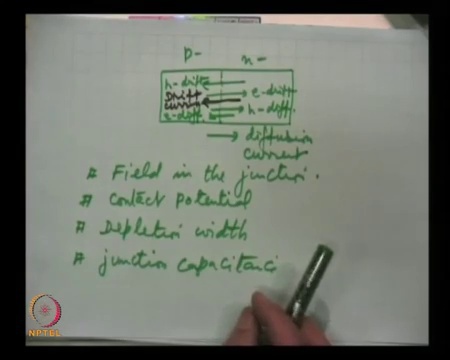 p- n-
h-drift
Drift e-drift
current h-diff.
e-diff
→ diffusion
current
# Field in the junction.
# contact potential
# Depletion width
# junction capacitanc
NPTEL